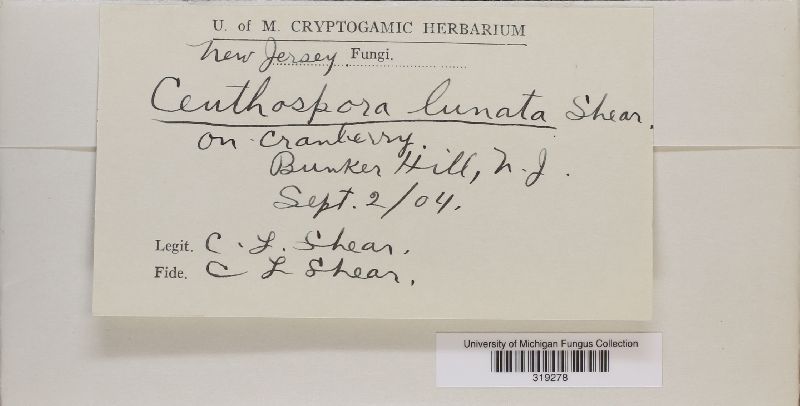 U. of M. CRYPTOGAMIC HERBARIUM
New Jersey Fungi.
Ceuthospora lunata Shear.
on cranberry.
Bunker Hill, N.J.
Sept. 2/04.
Legit. C. L. Shear.
Fide. C L Shear.
University of Michigan Fungus Collection
319278